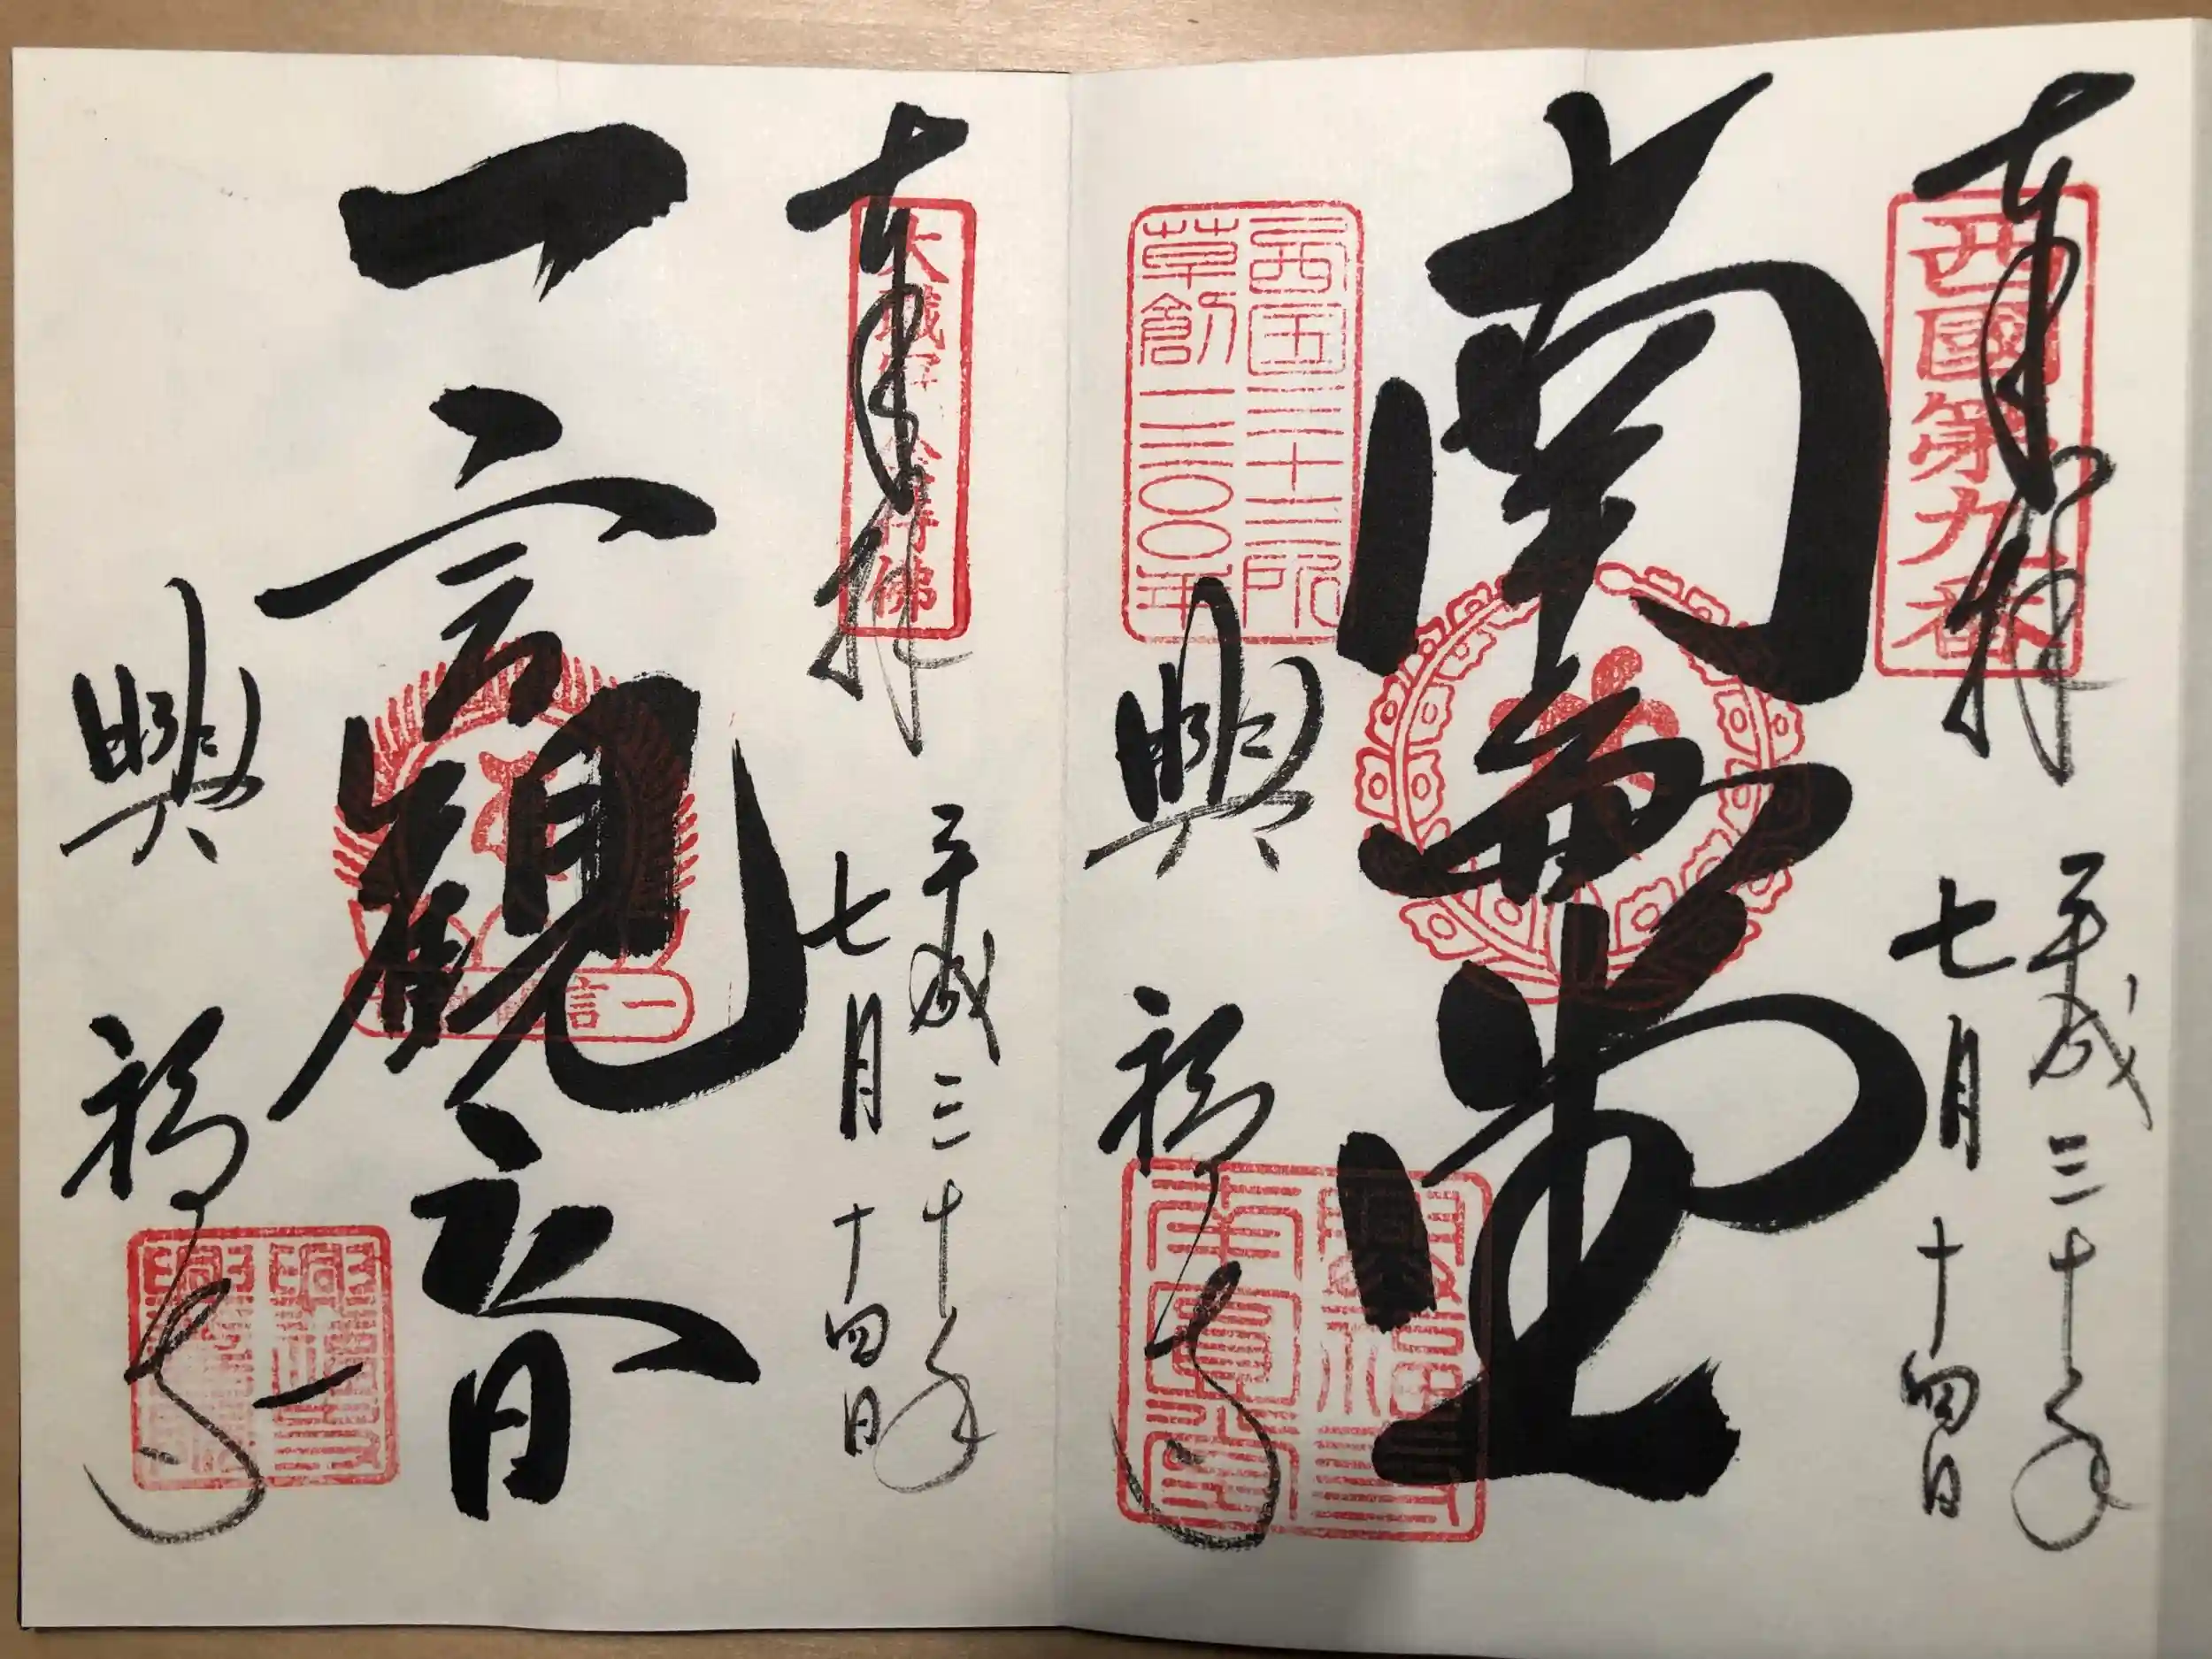 奉拝
西國第九番
平成三十年
七月十四日
南圓堂
西国三十三所
草創一三〇〇年
興福寺
興福寺
南圓堂
奉拝
平成三十年
七月十四日
一言觀音
一言
興福寺
興福寺